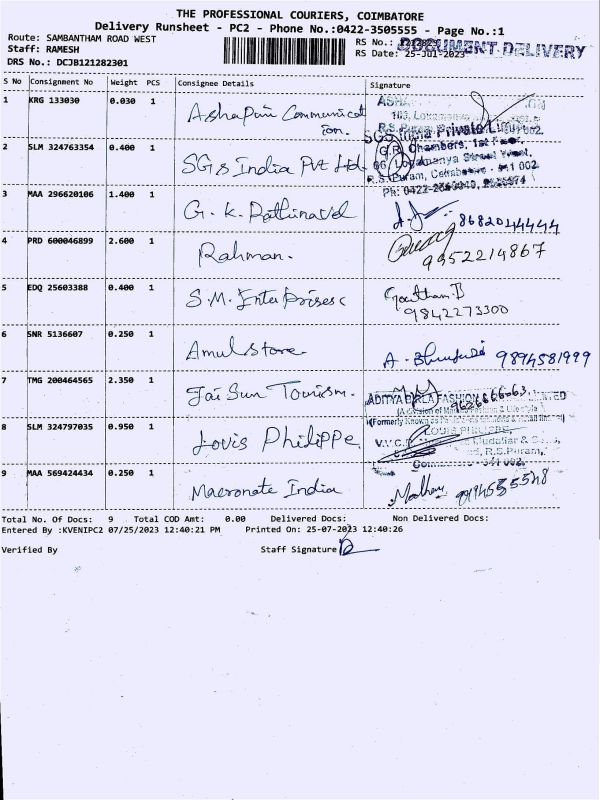 THE PROFESSIONAL COURIERS, COIMBATORE
Delivery Runsheet - PC2 - Phone No.:0422-3505555 - Page No.:1
Route: SAMBANTHAM ROAD WEST
Staff: RAMESH
DRS No.: DCJB121282301
RS No.:
DOCUMENT DELIVERY
RS Date: 25-Jul-2023
S No Consignment No Weight PCS Consignee Details Signature
1 KRG 133030 0.030 1 Ashapuri Communication.
2 SLM 324763354 0.400 1 SGS India Pvt Ltd
SGS India Private Limited
Chambers, 1st Floor,
R.S. Puram, Coimbatore - 641 002
3 MAA 296620106 1.400 1 G. K. Rathinavel 8682044444
4 PRD 600046899 2.600 1 Rahman. 9952214867
5 EDQ 25603388 0.400 1 S.M. Enterprises Goutham.B
9842273300
6 SNR 5136607 0.250 1 Amul Store 9894581999
7 TMG 200464565 2.350 1 Jai Sun Tourism.
ADITYA BIRLA FASHION
9626666063
8 SLM 324797035 0.950 1 Lovis Philippe
LOUIS PHILIPPE,
R.S.Puram,
9 MAA 569424434 0.250 1 Macronate India Madhan
Total No. Of Docs: 9 Total COD Amt: 0.00 Delivered Docs: Non Delivered Docs:
Entered By :KVENIPC2 07/25/2023 12:40:21 PM Printed On: 25-07-2023 12:40:26
Verified By Staff Signature